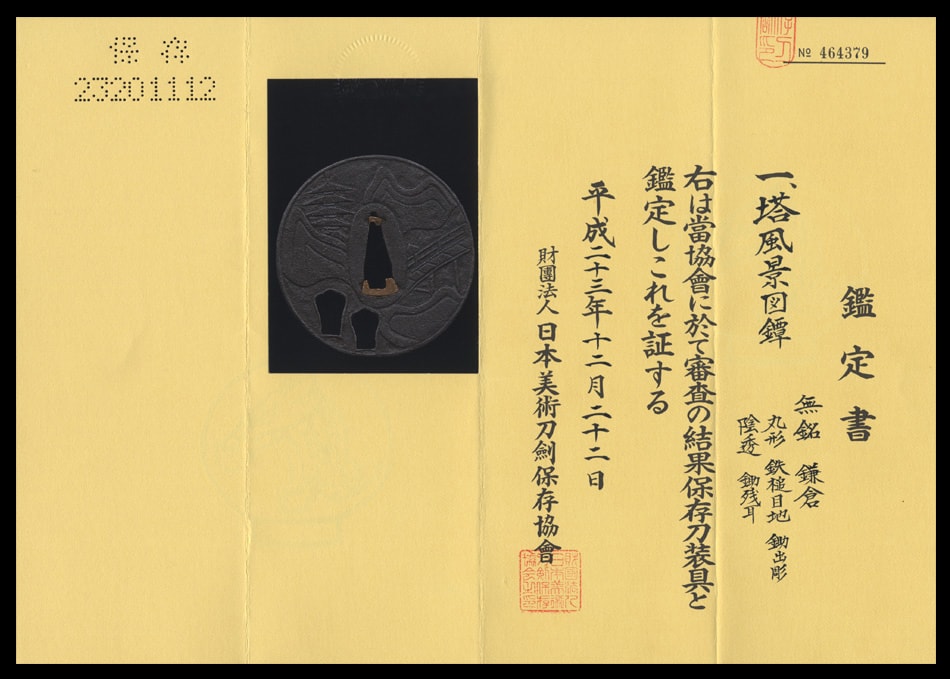 № 464379
鑑定書
一、塔風景図鐔
無銘 鎌倉
丸形 鉄槌目地 鋤出彫
陰透 鋤残耳
右は當協會に於て審査の結果保存刀装具と
鑑定しこれを証する
平成二十三年十二月二十二日
財團法人 日本美術刀劍保存協會
保存
23201112